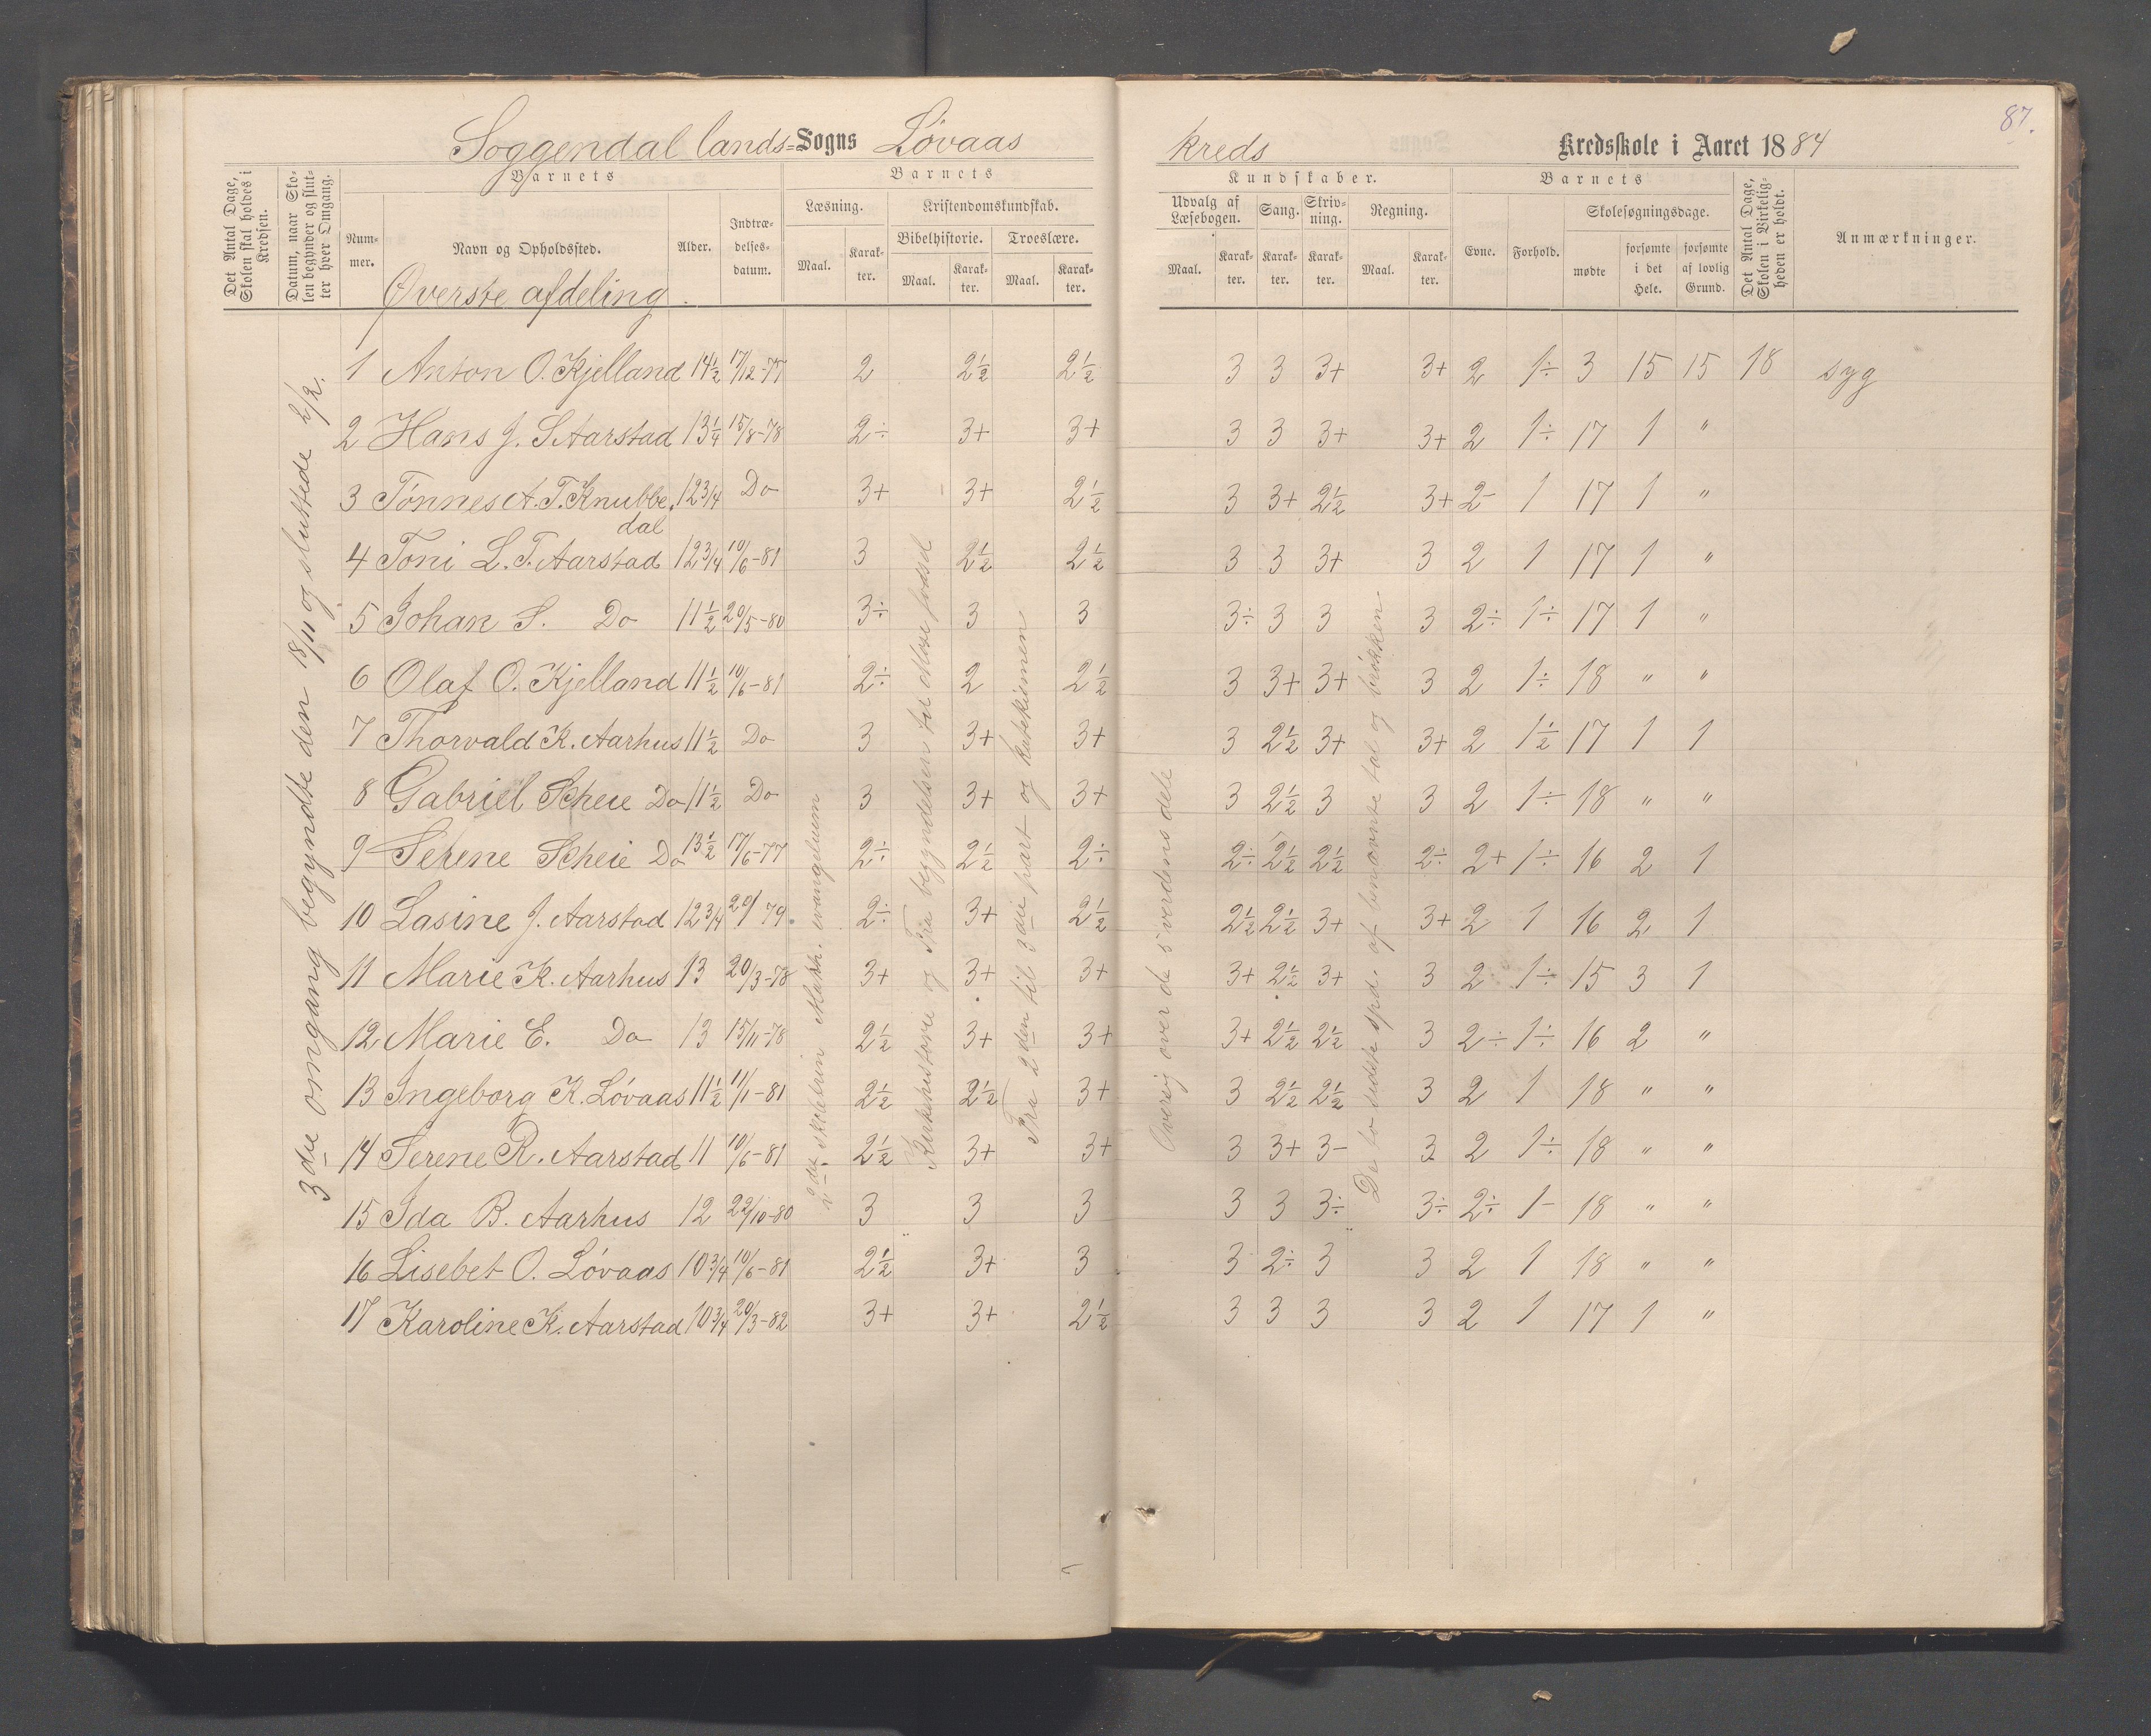 87.
Soggendal lands=Sogns Lóvaas kreds Kredsskole i Aaret 1884
Det Antal Dage, Skolen skal holdes i Kredsen.
Datum, naar Skolen begynder og slutter hver Omgang.
Barnets
Nummer.
Navn og Opholdssted.
Alder.
Indtrædelsesdatum.
Barnets
Læsning.
Maal.
Karakter.
Kristendomskundskab.
Bibelhistorie.
Maal.
Karakter.
Troeslære.
Maal.
Karakter.
Kundskaber.
Udvalg af Læsebogen.
Maal.
Karakter.
Sang.
Karakter.
Skrivning.
Karakter.
Regning.
Maal.
Karakter.
Barnets
Evne.
Forhold.
Skolesøgningsdage.
mødte
forsømte i det Hele.
forsømte af lovlig Grund.
Det Antal Dage, Skolen i Virkeligheden er holdt.
Anmærkninger.
Øverste afdeling.
3die omgang begyndte den 18/11 og sluttede 2/12.
1 Anton O. Kjelland 14½ 17/12-77 2 2½ 2½ 3 3 3+ 3+ 2 1÷ 3 15 15 18 syg
2 Hans J. S Aarstad 13¼ 15/8-78 2÷ 3+ 3+ 3 3 3+ 3+ 2 1÷ 17 1 "
3 Tónnes A. T. Knubbedal 12¾ Do 3+ 3+ 2½ 3 3+ 2½ 3+ 2- 1 17 1 "
4 Toni L. T. Aarstad 12¾ 10/6-81 3 2½ 2½ 3 3 3+ 3 2 1 17 1 "
5 Johan S. Do 11½ 20/5-80 3÷ 3 3 3÷ 3 3 3 2÷ 1÷ 17 1 "
6 Olaf O. Kjelland 11½ 10/6-81 2÷ 2 2½ 3 3+ 3+ 3 2 1÷ 18 " "
7 Thorvald K. Aarhus 11½ Do 3 3+ 3+ 3 2½ 3+ 3+ 2 1½ 17 1 1
8 Gabriel Scheie Do 11½ Do 3 3+ 3+ 3 2½ 3 3 2 1÷ 18 " "
9 Serene Scheie Do 13½ 17/6-77 2÷ 2½ 2÷ 2÷ 2½ 2½ 2÷ 2+ 1÷ 16 2 1
10 Lasine J. Aarstad 12¾ 20/ 79 2÷ 3+ 2½ 2½ 2½ 3+ 3+ 2 1 16 2 1
11 Marie K. Aarhus 13 20/3-78 3+ 3+ 3+ 3+ 2½ 3+ 3 2 1÷ 15 3 1
12 Marie E. Do 13 15/11-78 2½ 3+ 3+ 3+ 2½ 2½ 3 2÷ 1÷ 16 2 "
13 Ingeborg K. Lóvaas 11½ 11/1-81 2½ 2½ 3+ 3 2½ 2½ 3 2 1 18 " "
14 Serene R. Aarstad 11 10/6-81 2½ 3+ 3+ 3 3+ 3- 3 2 1÷ 18 " "
15 Ida B. Aarhus 12 22/10-80 3 3 3 3 3 3÷ 3÷ 2÷ 1- 18 " "
16 Lisebet O. Lóvaas 10¾ 10/6-81 2½ 3+ 3 3 2÷ 3 3 2 1 18 " "
17 Karoline K. Aarstad 10¾ 20/3-82 3+ 3+ 2½ 3 3 3 3 2 1 17 1 "
2det skoletrin Markk. evangelium
Kirkehistorie og Fra begyndelsen til Mose fødsel
Fra 2den til 3die part og katekismen
Oversig over de 5 verdens dele
De to sidste spd. af benævnte tal og brókken